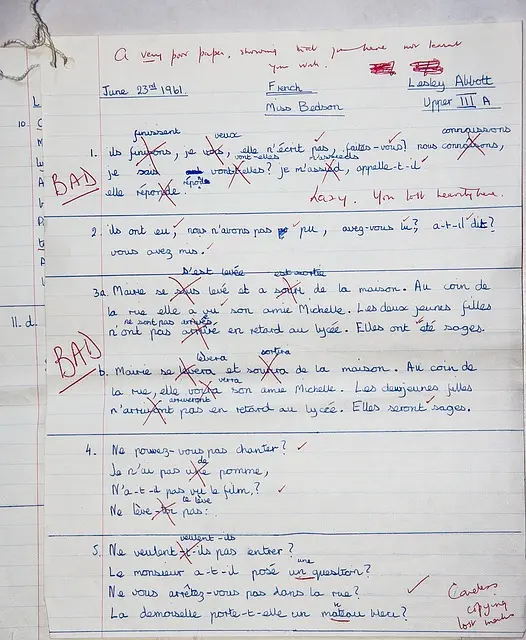 A very poor paper, showing that you have not learnt
your work.
June 23rd 1961. French Lesley Abbott
Miss Bedson Upper III A
finissent veux connaissons
1. ils finirons, je vous, elle n'écrit pas, faites-vous! nous connaisons,
vont-elles m'assieds
je sais vont-elles? je m'assied, appelle-t-il
BAD
répond
elle réponde.
Lazy. You lost heavily here.
2. ils ont eu, nous n'avons pas pu, avez-vous lu? a-t-il dit?
vous avez mis.
s'est levée est sortie
3a. Marie se levé et a de la maison. Au coin de
la rue elle a vu son amie Michelle. Les deux jeunes filles
ne sont pas arrivés
n'ont pas arrivé en retard au lycée. Elles ont été sages.
BAD
lèvera sortira
b. Marie se levera et de la maison. Au coin de
verra
la rue, elle son amie Michelle. Les deux jeunes filles
arriveront
n'arrivont pas en retard au lycée. Elles seront sages.
4. Ne pouvez-vous pas chanter?
de
Je n'ai pas une pomme,
N'a-t-il pas vu le film,?
te lève
Ne lève-toi pas.
veulent-ils
5. Ne veulent-t-ils pas entrer?
une
Le monsieur a-t-il posé un question?
Ne vous arrêtez-vous pas dans la rue?
La demoiselle porte-t-elle un mateau bleu?
Careless
copying
lost marks
10.
11. d.